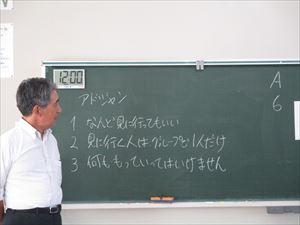 12:00
アドジャン
1 なんど見に行ってもいい
2 見に行く人はグループで1人だけ
3 何ももっていってはいけません
A
6